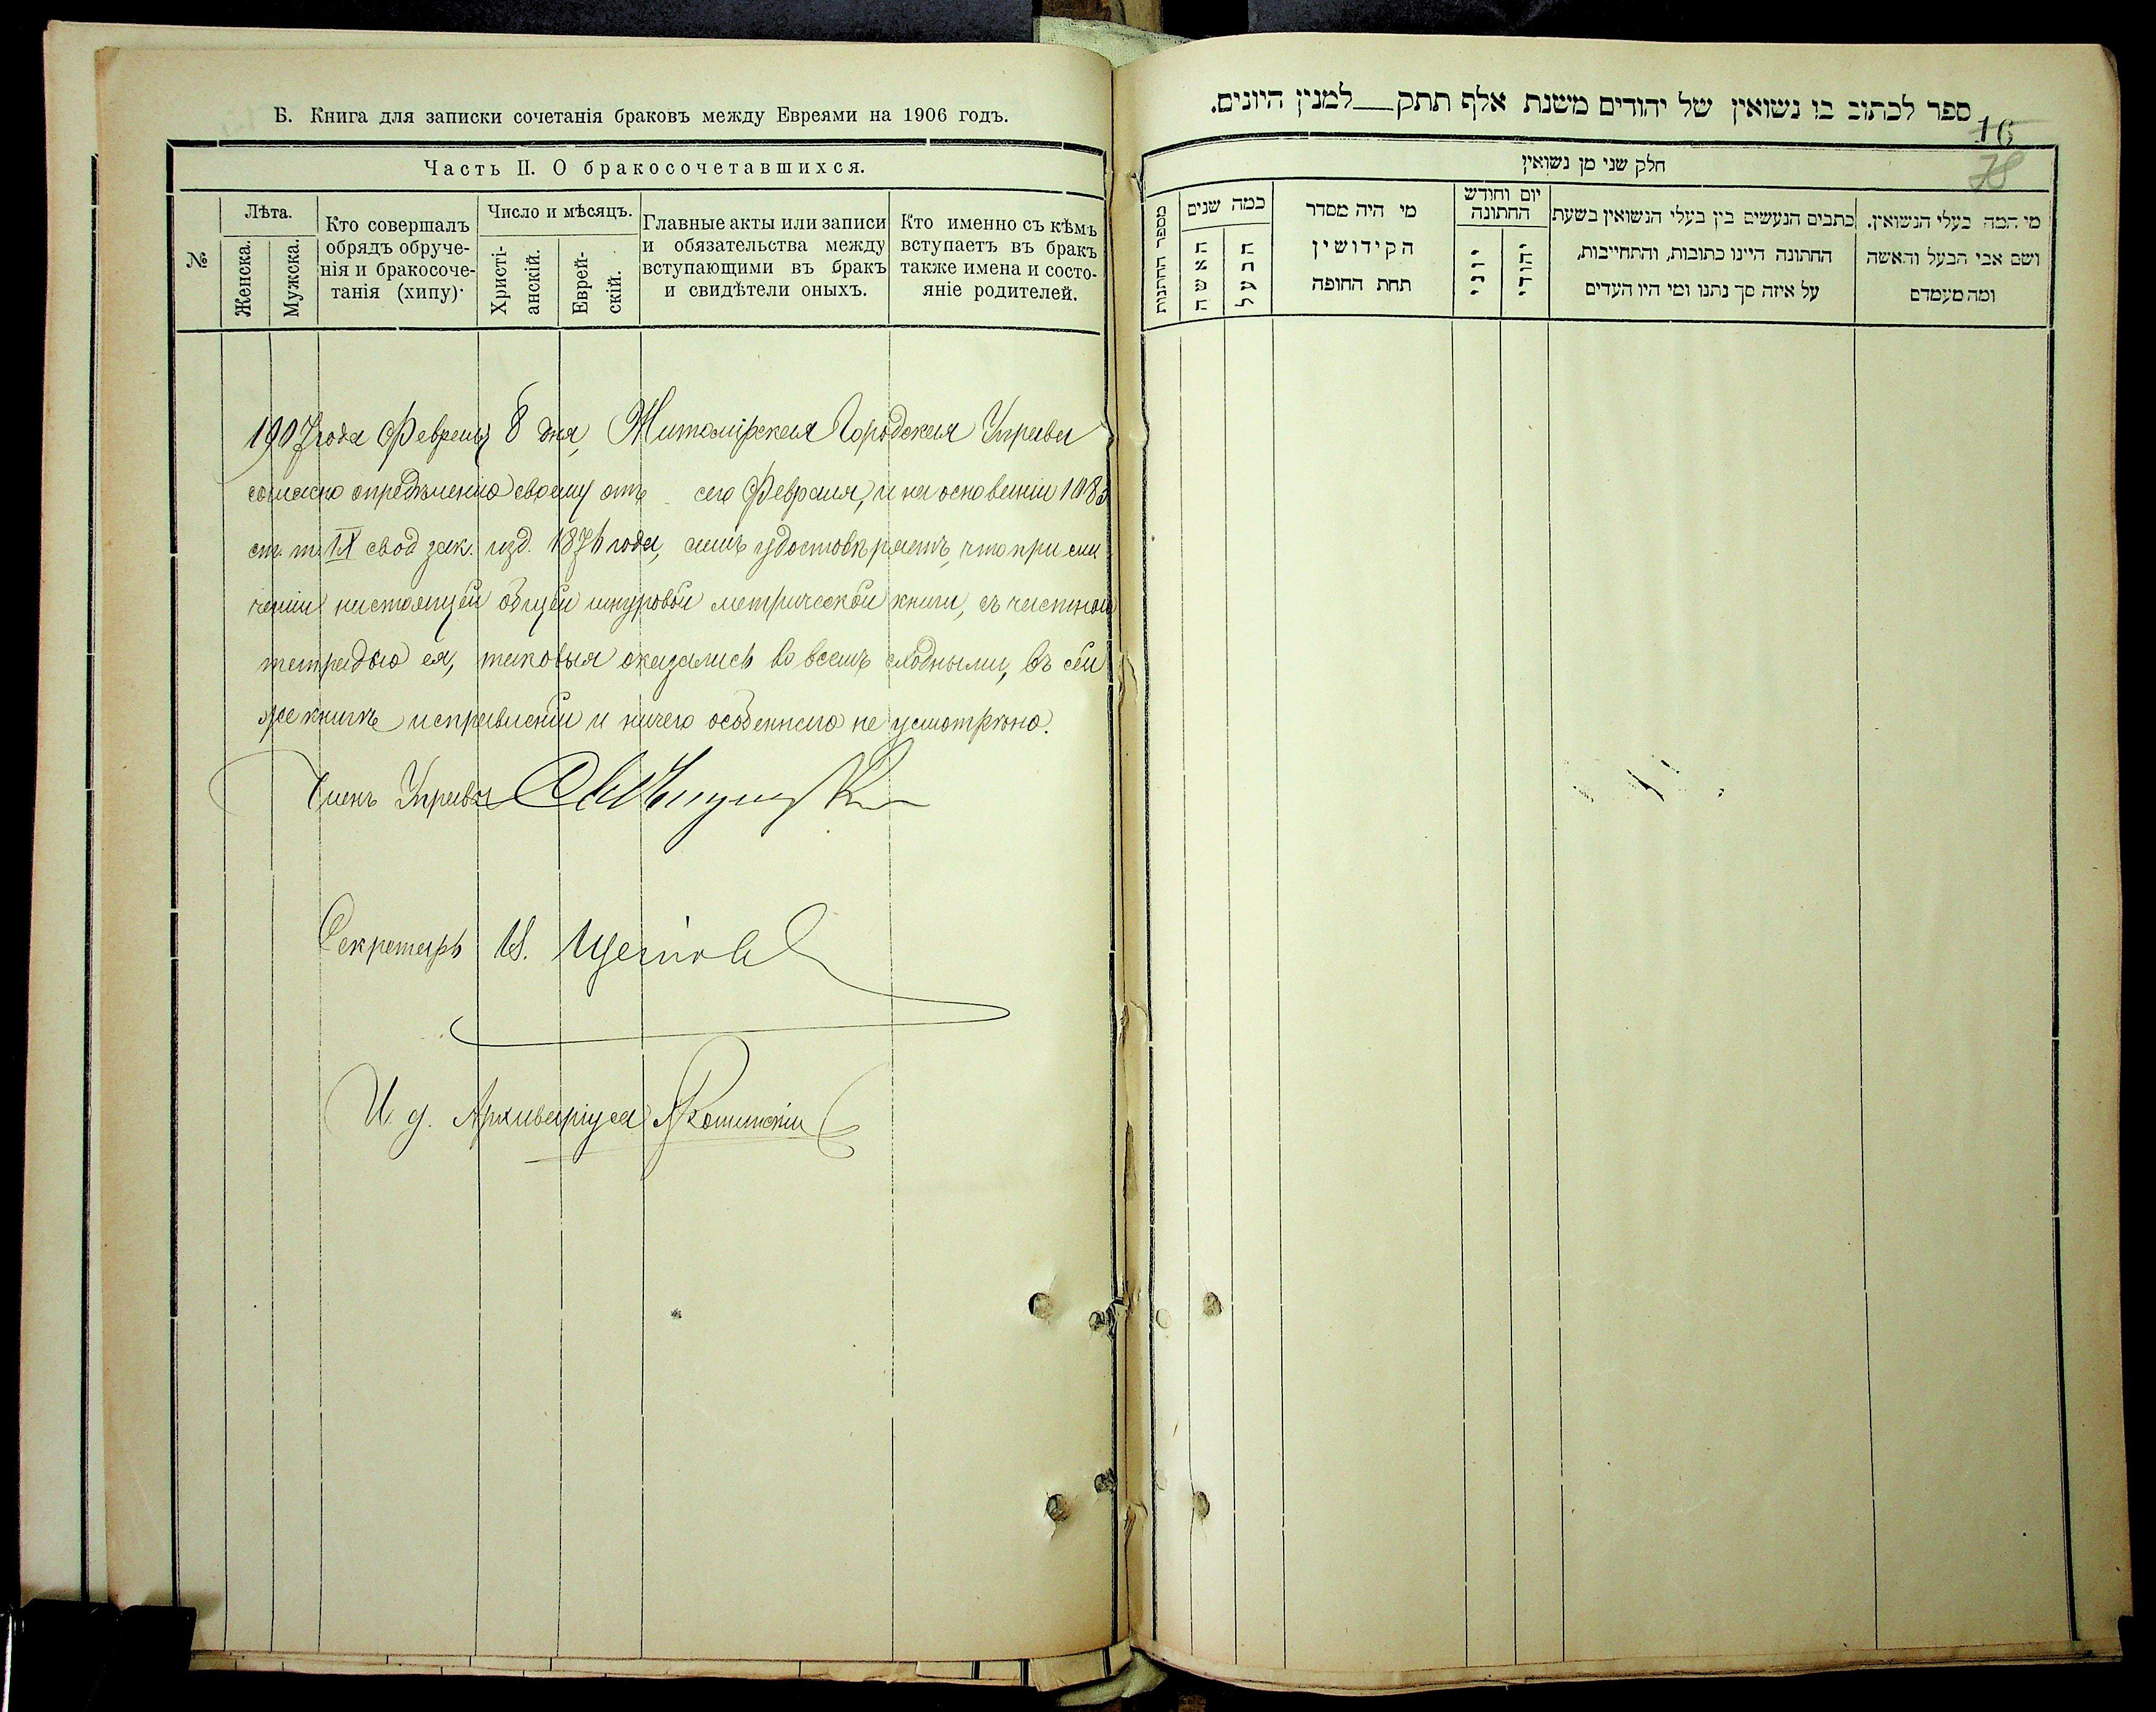 Б. Книга для записки сочетанія браковъ между Евреями на 1906 годъ.
Часть II. О бракосочетавшихся.
№
Лѣта.
Женска.
Мужска.
Кто совершалъ
обрядъ обруче-
нія и бракосоче-
танія (хипу)·
Число и мѣсяцъ.
Христі-
анскій.
Еврей-
скій.
Главные акты или записи
и обязательства между
вступающими въ бракъ
и свидѣтели оныхъ.
Кто именно съ кѣмъ
вступаетъ въ бракъ
также имена и состо-
яніе родителей.
1907 года Февраля 8 дня, Житомірская Городская Управа
согласно опредѣленію своему отъ сего Февраля, и на основаніи 1083
ст. т. IX свод зак. изд. 1876 года, симъ удостовѣряетъ, что при сли
ченіи настоящей общей шнуровой метрической книги, съ частною
тетрадью ея, таковыя оказались во всемъ сходными, въ сей
же книгѣ исправленій и ничего особеннаго не усмотрѣно.
Членъ Управы
Секретарь И.
И. д. Архиваріуса
ספר לכתוב בו נשואין של יהודים משנת אלף תתק___למנין היונים.
16
78
חלק שני מן נשואין
מספר החתנות
כמה שנים
האשה
הבעל
מי היה מסדר
הקידושין
תחת החופה
יום וחודש
החתונה
יוני
יהודי
כתבים הנעשים בין בעלי הנשואין בשעת
החתונה היינו כתובות, והתחייבות,
על איזה סך נתנו ומי היו העדים
מי המה בעלי הנשואין.
ושם אבי הבעל והאשה
ומה מעמדם